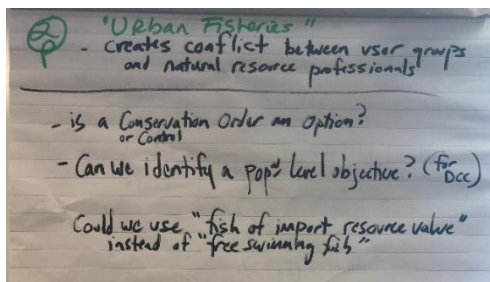 2
"Urban Fisheries"
- creates conflict between user groups
and natural resource professionals
- is a Conservation Order an Option?
or Control
- Can we identify a popⁿ level objective? (for
DCC)
Could we use "fish of import resource value"
instead of "free swimming fish"